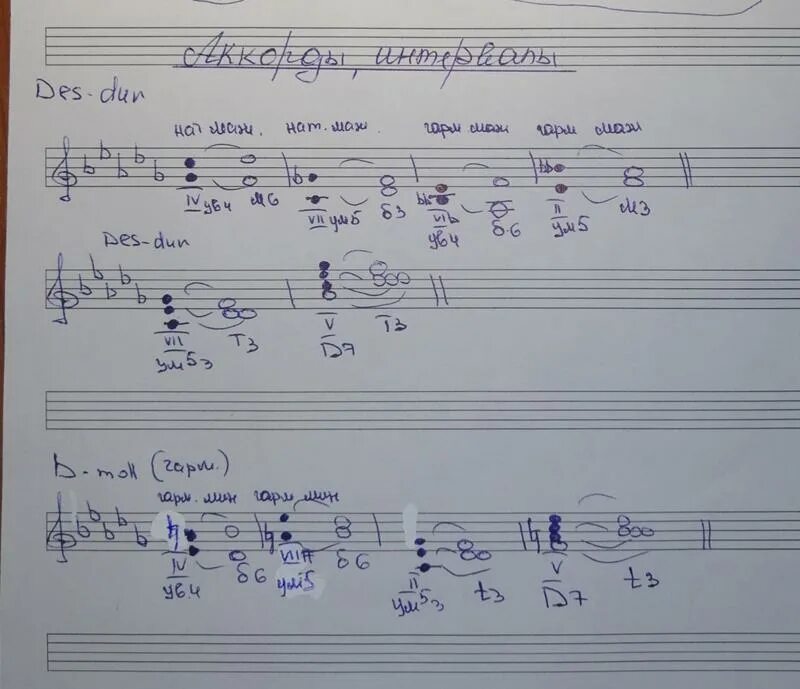 Аккорды, интервалы
Des-dur
нат маж. нат. маж. гарм маж гарм маж
IV VII VIb II
ув4 м6 ум5 б3 ув4 б.6 ум5 м3
Des-dur
VII V
ум5 3 T3 D7 T3
b-moll (гарм.)
гарм. мин гарм. мин
IV VII# II V
ув.4 б6 ум5 б6 ум5 3 t3 D7 t3